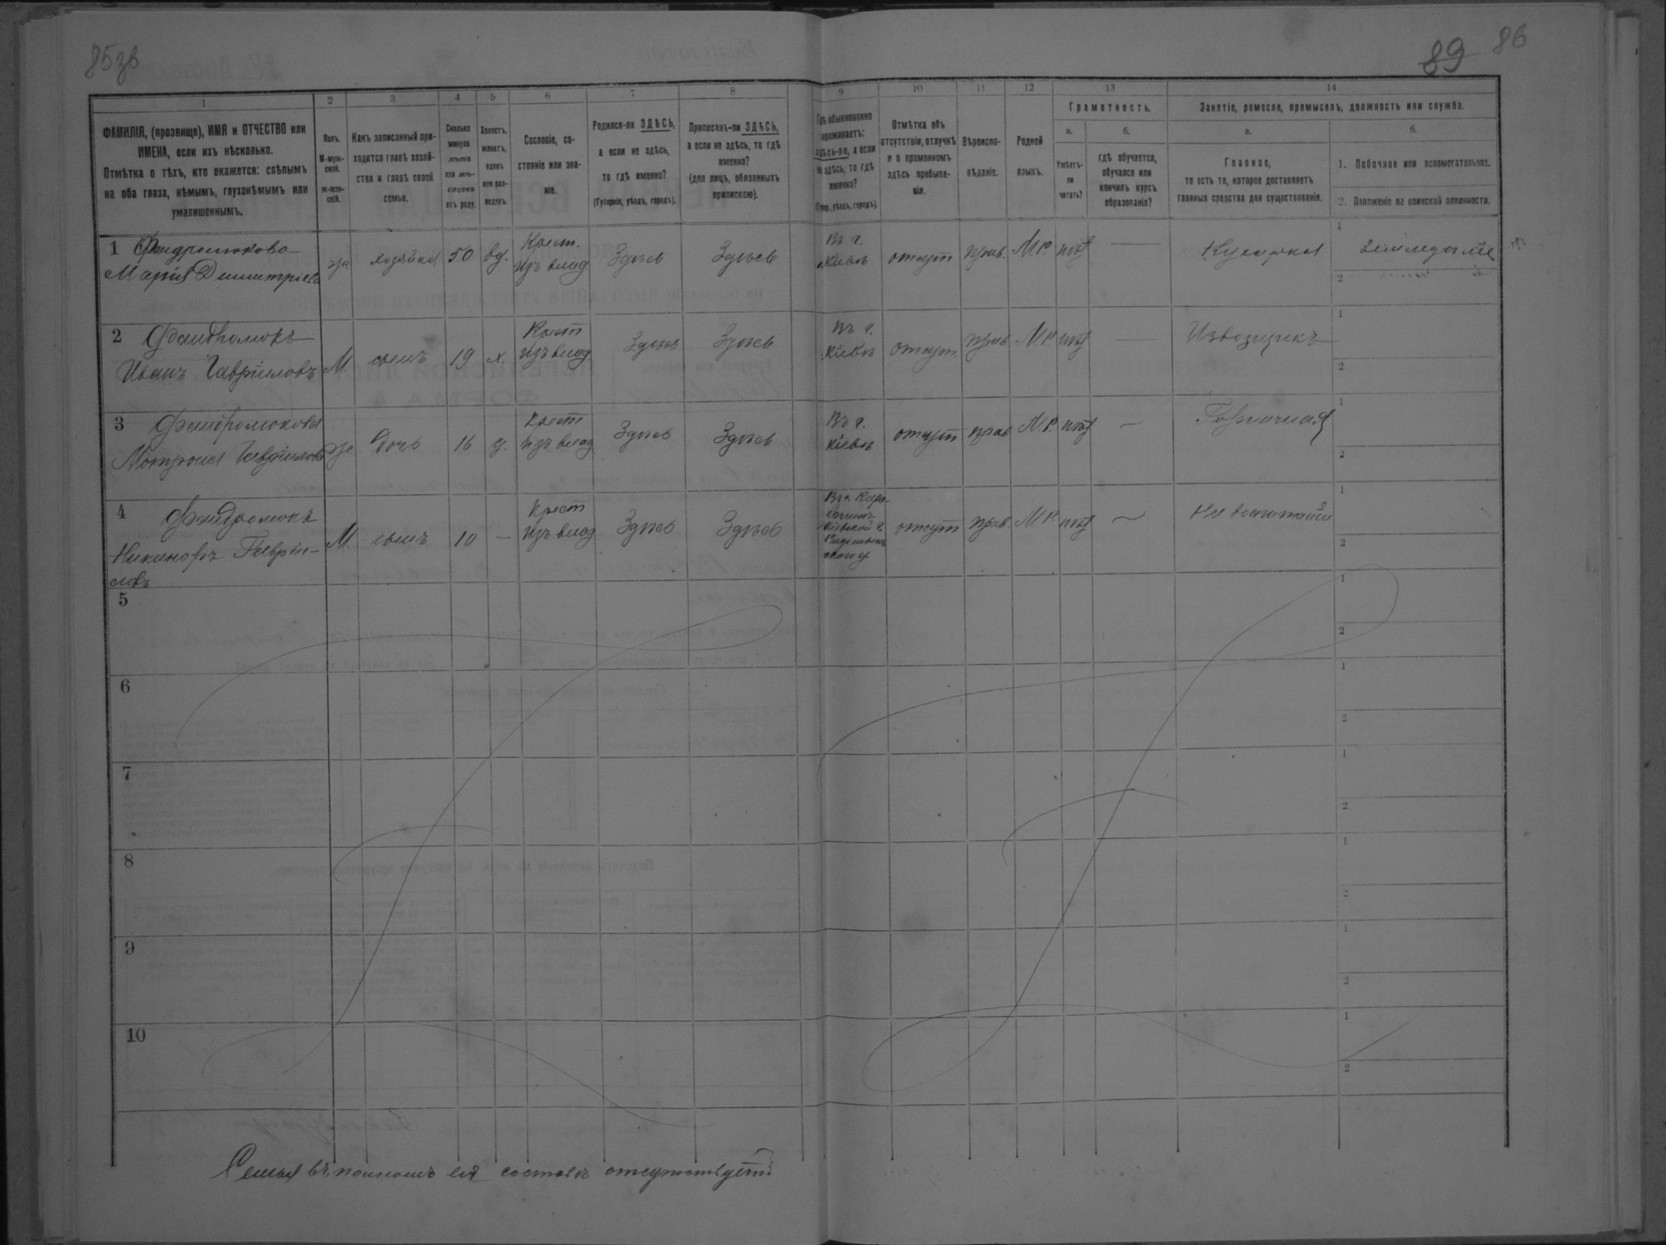 85зв
89 86
1 2 3 4 5 6 7 8 9 10 11 12 13 14
ФАМИЛІЯ, (прозвище), ИМЯ и ОТЧЕСТВО или
ИМЕНА, если ихъ нѣсколько.
Отмѣтка о тѣхъ, кто окажется: слѣпымъ
на оба глаза, нѣмымъ, глухонѣмымъ или
умалишеннымъ.
Полъ.
М-муж-
ской.
ж-жен-
скій.
Какъ записанный при-
ходится главѣ хозяй-
ства и главѣ своей
семьи.
Сколько
минуло
лѣтъ
или мѣс-
яцевъ
отъ роду.
Холостъ,
женатъ,
вдовъ
или раз-
веденъ.
Сословіе, со-
стояніе или зва-
ніе.
Родился-ли ЗДѢСЬ,
а если не здѣсь,
то гдѣ именно?
(Губернія, уѣздъ, городъ).
Приписанъ-ли ЗДѢСЬ,
а если не здѣсь, то гдѣ
именно?
(для лицъ, обязанныхъ
припискою).
Гдѣ обыкновенно
проживаетъ:
здѣсь-ли, а если
не здѣсь, то гдѣ
именно?
(Губер., уѣздъ, городъ).
Отмѣтка объ
отсутствіи, отлучкѣ
и о временномъ
здѣсь пребыва-
ніи.
Вѣроиспо-
вѣданіе.
Родной
языкъ.
Грамотность.
а.
Умѣетъ-
ли
читать?
б.
гдѣ обучается,
обучался или
кончилъ курсъ
образованія?
Занятіе, ремесло, промыселъ, должность или служба.
а.
Главное,
то есть то, которое доставляетъ
главныя средства для существованія.
б.
1. Побочное или вспомогательное.
2. Положеніе по воинской повинности.
1 Фандромюкова
Марія Димитріева ж хозяйка 50 вд. Крест. изъ влад Здѣсь Здѣсь Въ г. Кіевѣ отсут прав. М.Р. нѣт — Кухарка 1 Земледѣліе
2
2 Фандромюкъ
Иванъ Гавріиловъ М сынъ 19 х. Крест изъ влад Здѣсь Здѣсь Въ г. Кіевѣ отсут прав М.Р. нѣт — Извозщикъ 1
2
3 Фандромюкова
Мотрона Гавріилова ж Дочь 16 д. Крест изъ влад Здѣсь Здѣсь Въ г. Кіевѣ отсут прав М.Р. нѣт — Горничная 1
2
4 Фандромюкъ
Никаноръ Гавріи-
ловъ М. сынъ 10 — Крест изъ влад Здѣсь Здѣсь Кіевской отсут прав. М.Р. нѣт — 1
2
5 1
2
6 1
2
7 1
2
8 1
2
9 1
2
10 1
2
Семья въ полномъ ея составѣ отсутствуетъ